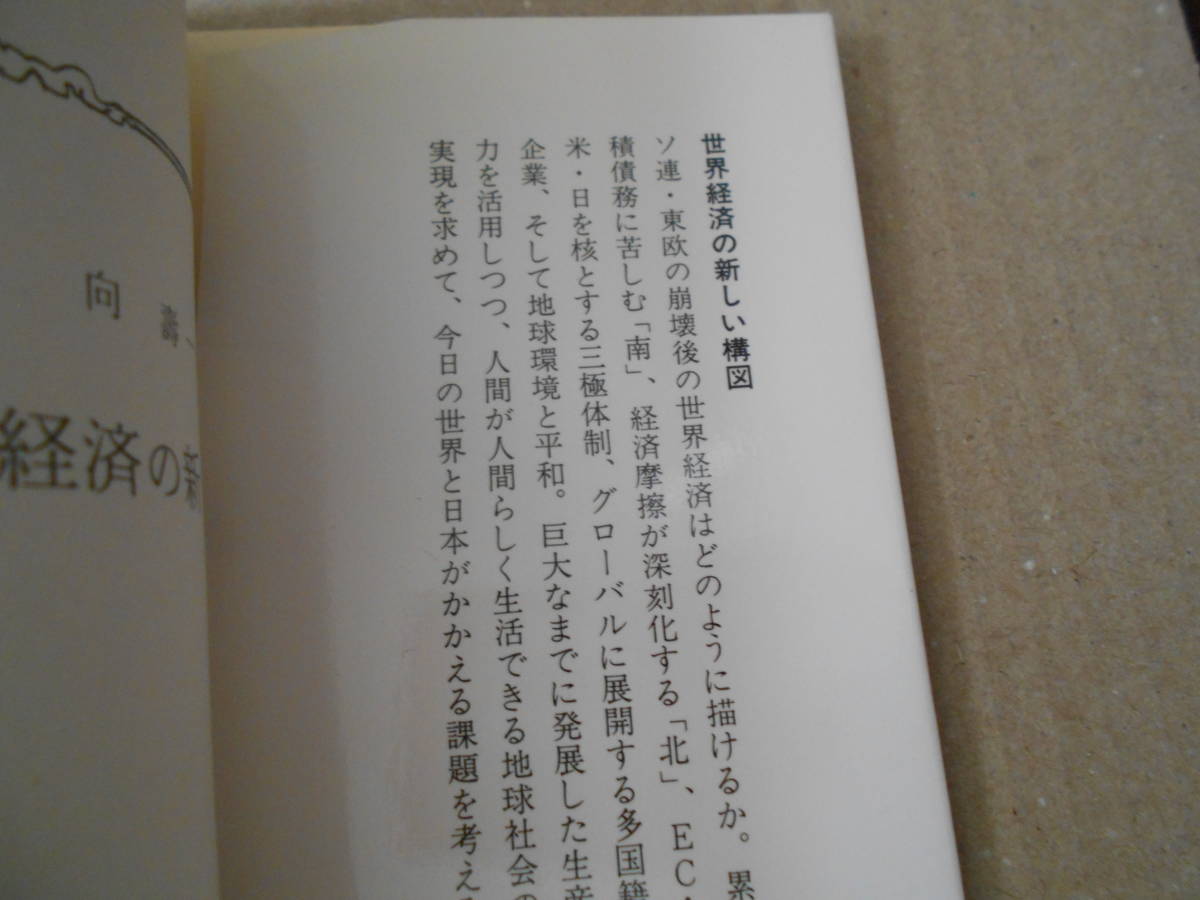 世界経済の新しい構図
ソ連・東欧の崩壊後の世界経済はどのように描けるか。累
積債務に苦しむ「南」、経済摩擦が深刻化する「北」、EC・
米・日を核とする三極体制、グローバルに展開する多国籍
企業、そして地球環境と平和。巨大なまでに発展した生産
力を活用しつつ、人間が人間らしく生活できる地球社会の
実現を求めて、今日の世界と日本がかかえる課題を考える
向 壽
経済の新